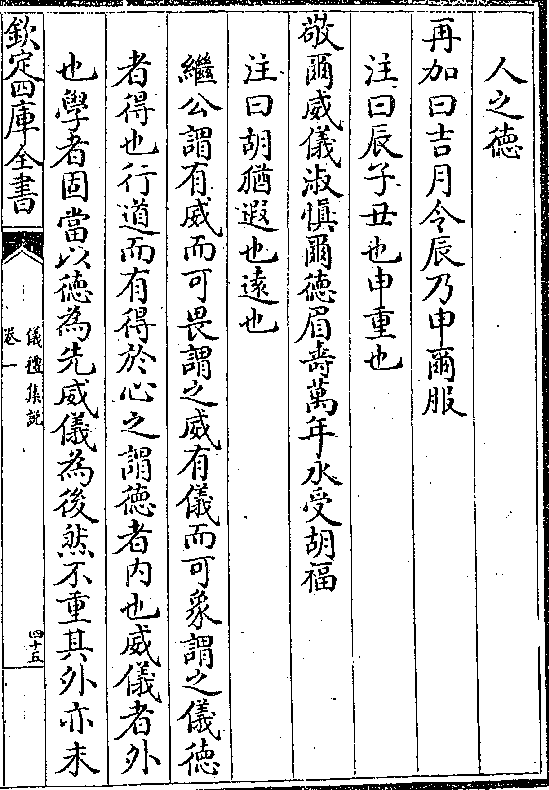 人之徳
再加曰吉月令辰乃申爾服
注曰辰子丑也申重也
敬爾威儀淑慎爾徳眉壽萬年永受胡福
注曰胡猶遐也遠也
繼公謂有威而可畏謂之威有儀而可象謂之儀徳
者得也行道而有得於心之謂徳者内也威儀者外
也學者固當以徳為先威儀為後然不重其外亦未
欽定四庫全書
儀禮集說
卷一
四十五